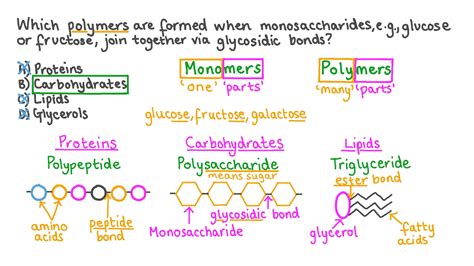 Which polymers are formed when monosaccharides, e.g., glucose
or fructose, join together via glycosidic bonds?
A) Proteins
B) Carbohydrates
C) Lipids
D) Glycerols
Monomers
'one' 'parts'
Polymers
'many' 'parts'
glucose, fructose, galactose
Proteins
Polypeptide
amino
acids
peptide
bond
Carbohydrates
Polysaccharide
means sugar
glycosidic bond
Monosaccharide
Lipids
Triglyceride
ester bond
glycerol
fatty
acids